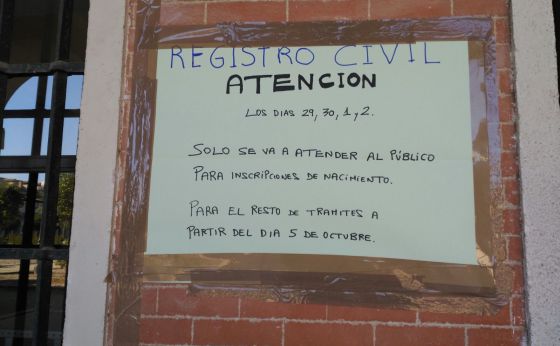 REGISTRO CIVIL
ATENCION
LOS DIAS 29, 30, 1 y 2.
SOLO SE VA A ATENDER AL PÚBLICO
PARA INSCRIPCIONES DE NACIMIENTO.
PARA EL RESTO DE TRAMITES A
PARTIR DEL DIA 5 DE OCTUBRE.